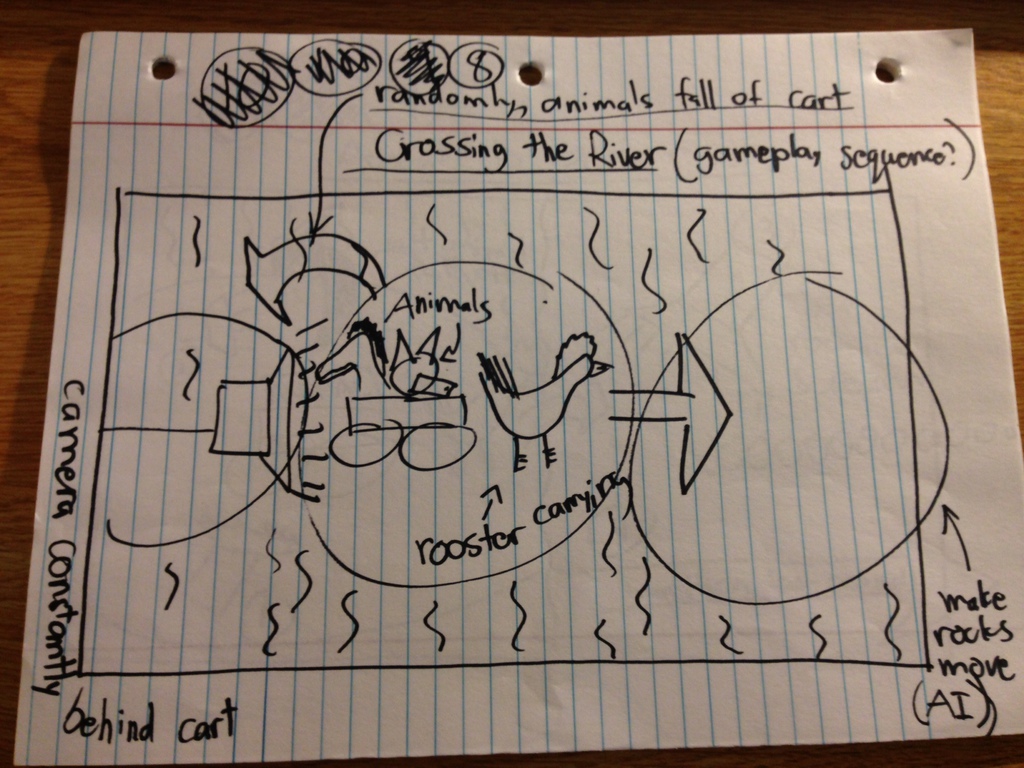 8
randomly, animals fall of cart
Crossing the River (gameplay sequence?)
Animals
rooster carrying
camera constantly
behind cart
make
rocks
move
(AI)